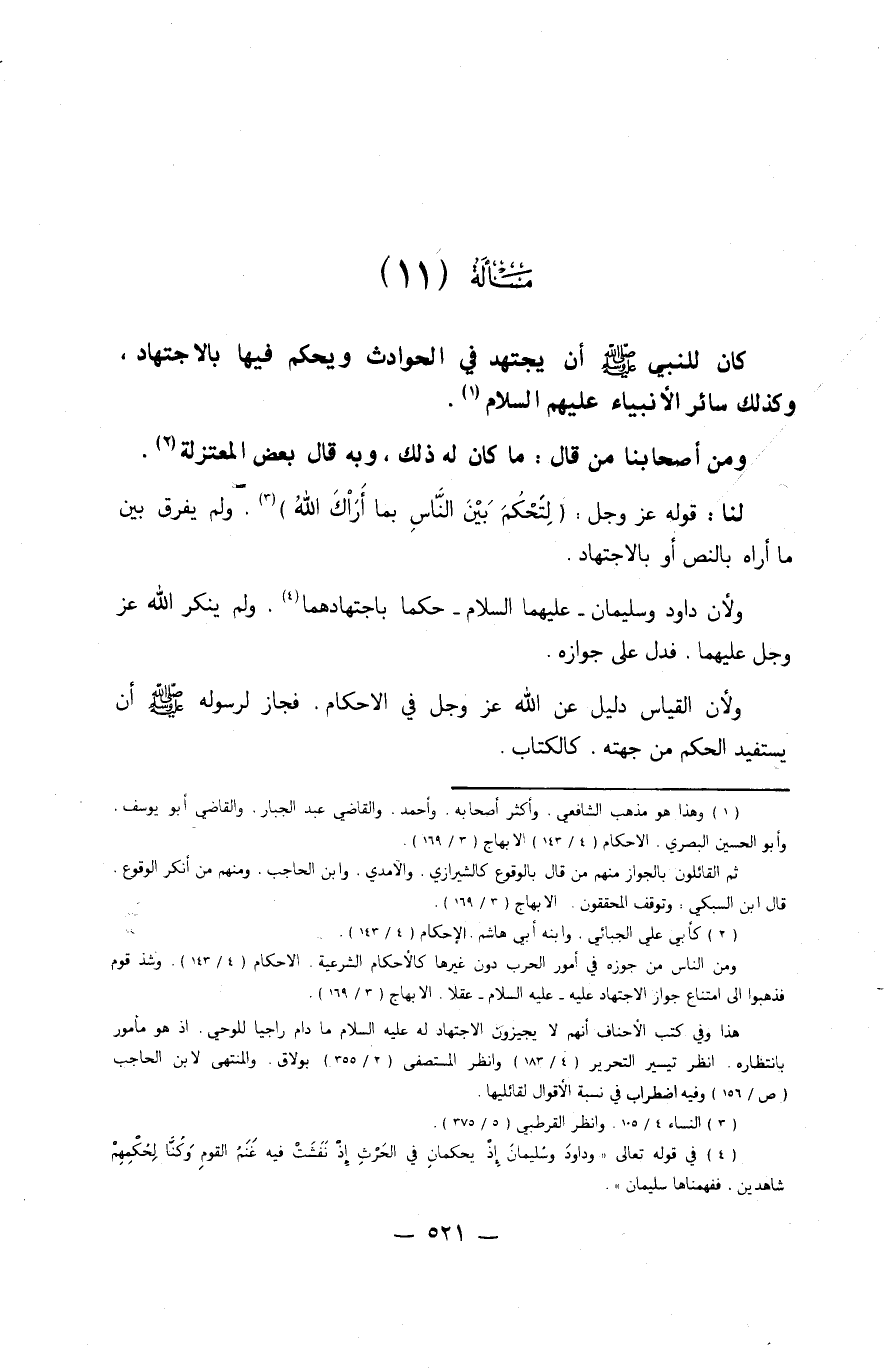 مسألة (١١)
كان للنبي ﷺ أن يجتهد في الحوادث ويحكم فيها بالاجتهاد ،
وكذلك سائر الأنبياء عليهم السلام (١) .
ومن أصحابنا من قال : ما كان له ذلك ، وبه قال بعض المعتزلة (٢) .
لنا : قوله عز وجل : ( لِتَحْكُمَ بَيْنَ النَّاسِ بما أَرَاْكَ اللهُ ) (٣) . ولم يفرق بين
ما أراه بالنص أو بالاجتهاد .
ولأن داود وسليمان ـ عليهما السلام ـ حكما باجتهادهما (٤) . ولم ينكر الله عز
وجل عليهما . فدل على جوازه .
ولأن القياس دليل عن الله عز وجل في الاحكام . فجاز لرسوله ﷺ أن
يستفيد الحكم من جهته . كالكتاب .
( ١ ) وهذا هو مذهب الشافعي . وأكثر أصحابه . وأحمد . والقاضي عبد الجبار . والقاضي أبو يوسف .
وأبو الحسين البصري . الاحكام ( ٤ / ١٤٣ ) الابهاج ( ٣ / ١٦٩ ) .
ثم القائلون بالجواز منهم من قال بالوقوع كالشيرازي . والآمدي . وابن الحاجب . ومنهم من أنكر الوقوع .
قال ابن السبكي : وتوقف المحققون . الابهاج ( ٣ / ١٦٩ ) .
( ٢ ) كأبي علي الجبائي . وابنه أبي هاشم . الإحكام ( ٤ / ١٤٣ ) .
ومن الناس من جوزه في أمور الحرب دون غيرها كالأحكام الشرعية . الاحكام ( ٤ / ١٤٣ ) . وشذ قوم
فذهبوا الى امتناع جواز الاجتهاد عليه ـ عليه السلام ـ عقلا . الابهاج ( ٣ / ١٦٩ ) .
هذا وفي كتب الأحناف أنهم لا يجيزون الاجتهاد له عليه السلام ما دام راجيا للوحي . اذ هو مأمور
بانتظاره . انظر تيسير التحرير ( ٤ / ١٨٣ ) وانظر المستصفى ( ٢ / ٣٥٥ ) بولاق . والمنتهى لابن الحاجب
( ص / ١٥٦ ) وفيه اضطراب في نسبة الأقوال لقائليها .
( ٣ ) النساء ٤ / ١٠٥ . وانظر القرطبي ( ٥ / ٣٧٥ ) .
( ٤ ) في قوله تعالى « وداودَ وسُليمانَ إِذْ يحكمانِ في الحَرْثِ إِذْ نَفَشَتْ فيه غَنَمُ القومِ وَكُنَّا لِحُكْمِهِمْ
شاهدين . ففهمناها سليمان » .
— ٥٢١ —